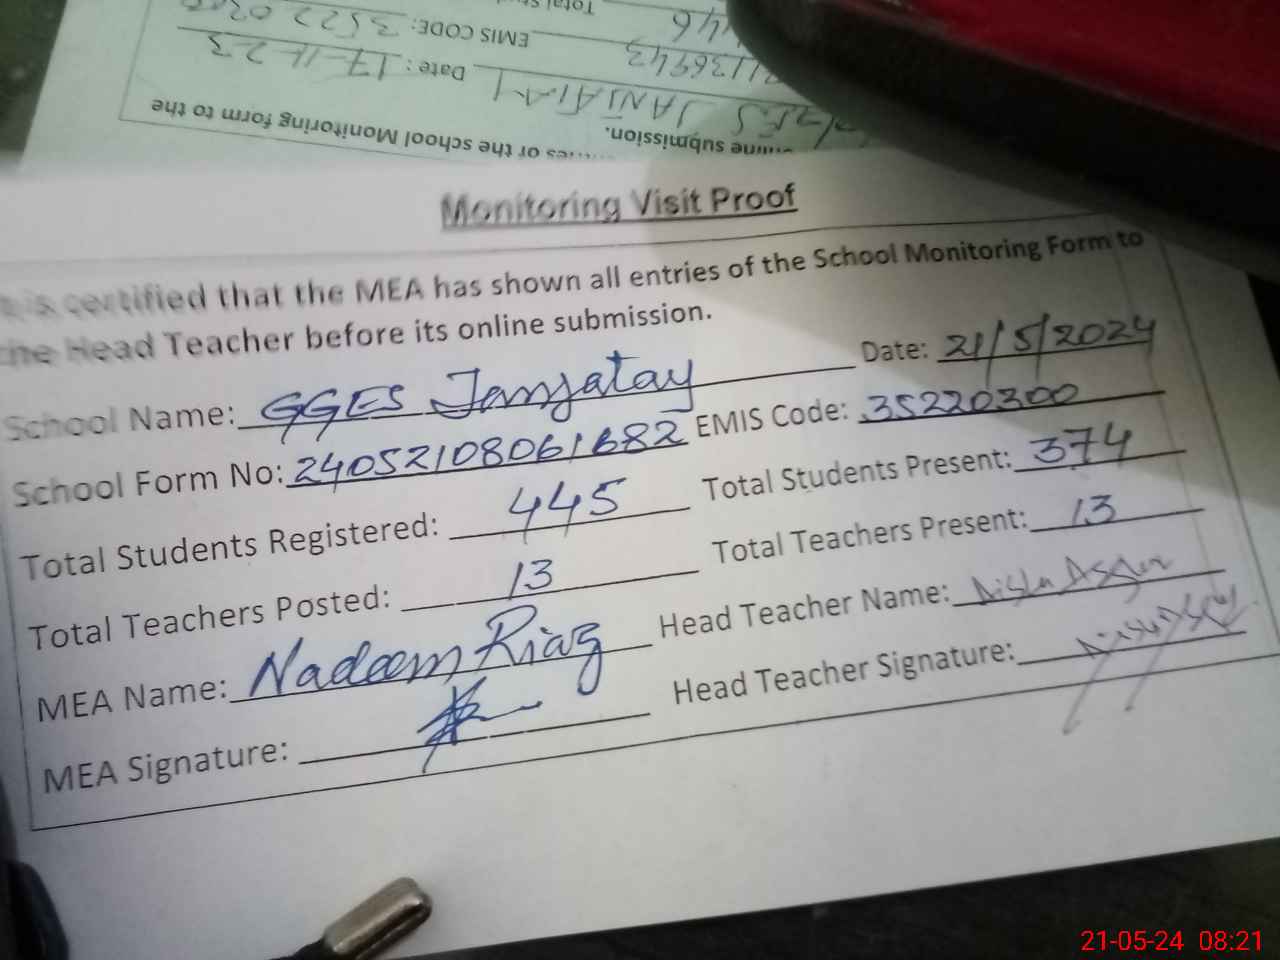 Total
46
EMIS CODE: 3522 0300
21136943
Date: 17-11-23
JANJATAY
the school Monitoring form to the
submission.
Monitoring Visit Proof
It is certified that the MEA has shown all entries of the School Monitoring Form to
the Head Teacher before its online submission.
School Name: GGES Janjatay Date: 21/5/2024
School Form No: 24052108061682 EMIS Code: 35220300
Total Students Registered: 445 Total Students Present: 374
Total Teachers Posted: 13 Total Teachers Present: 13
MEA Name: Nadeem Riaz Head Teacher Name:
MEA Signature: Head Teacher Signature:
21-05-24 08:21